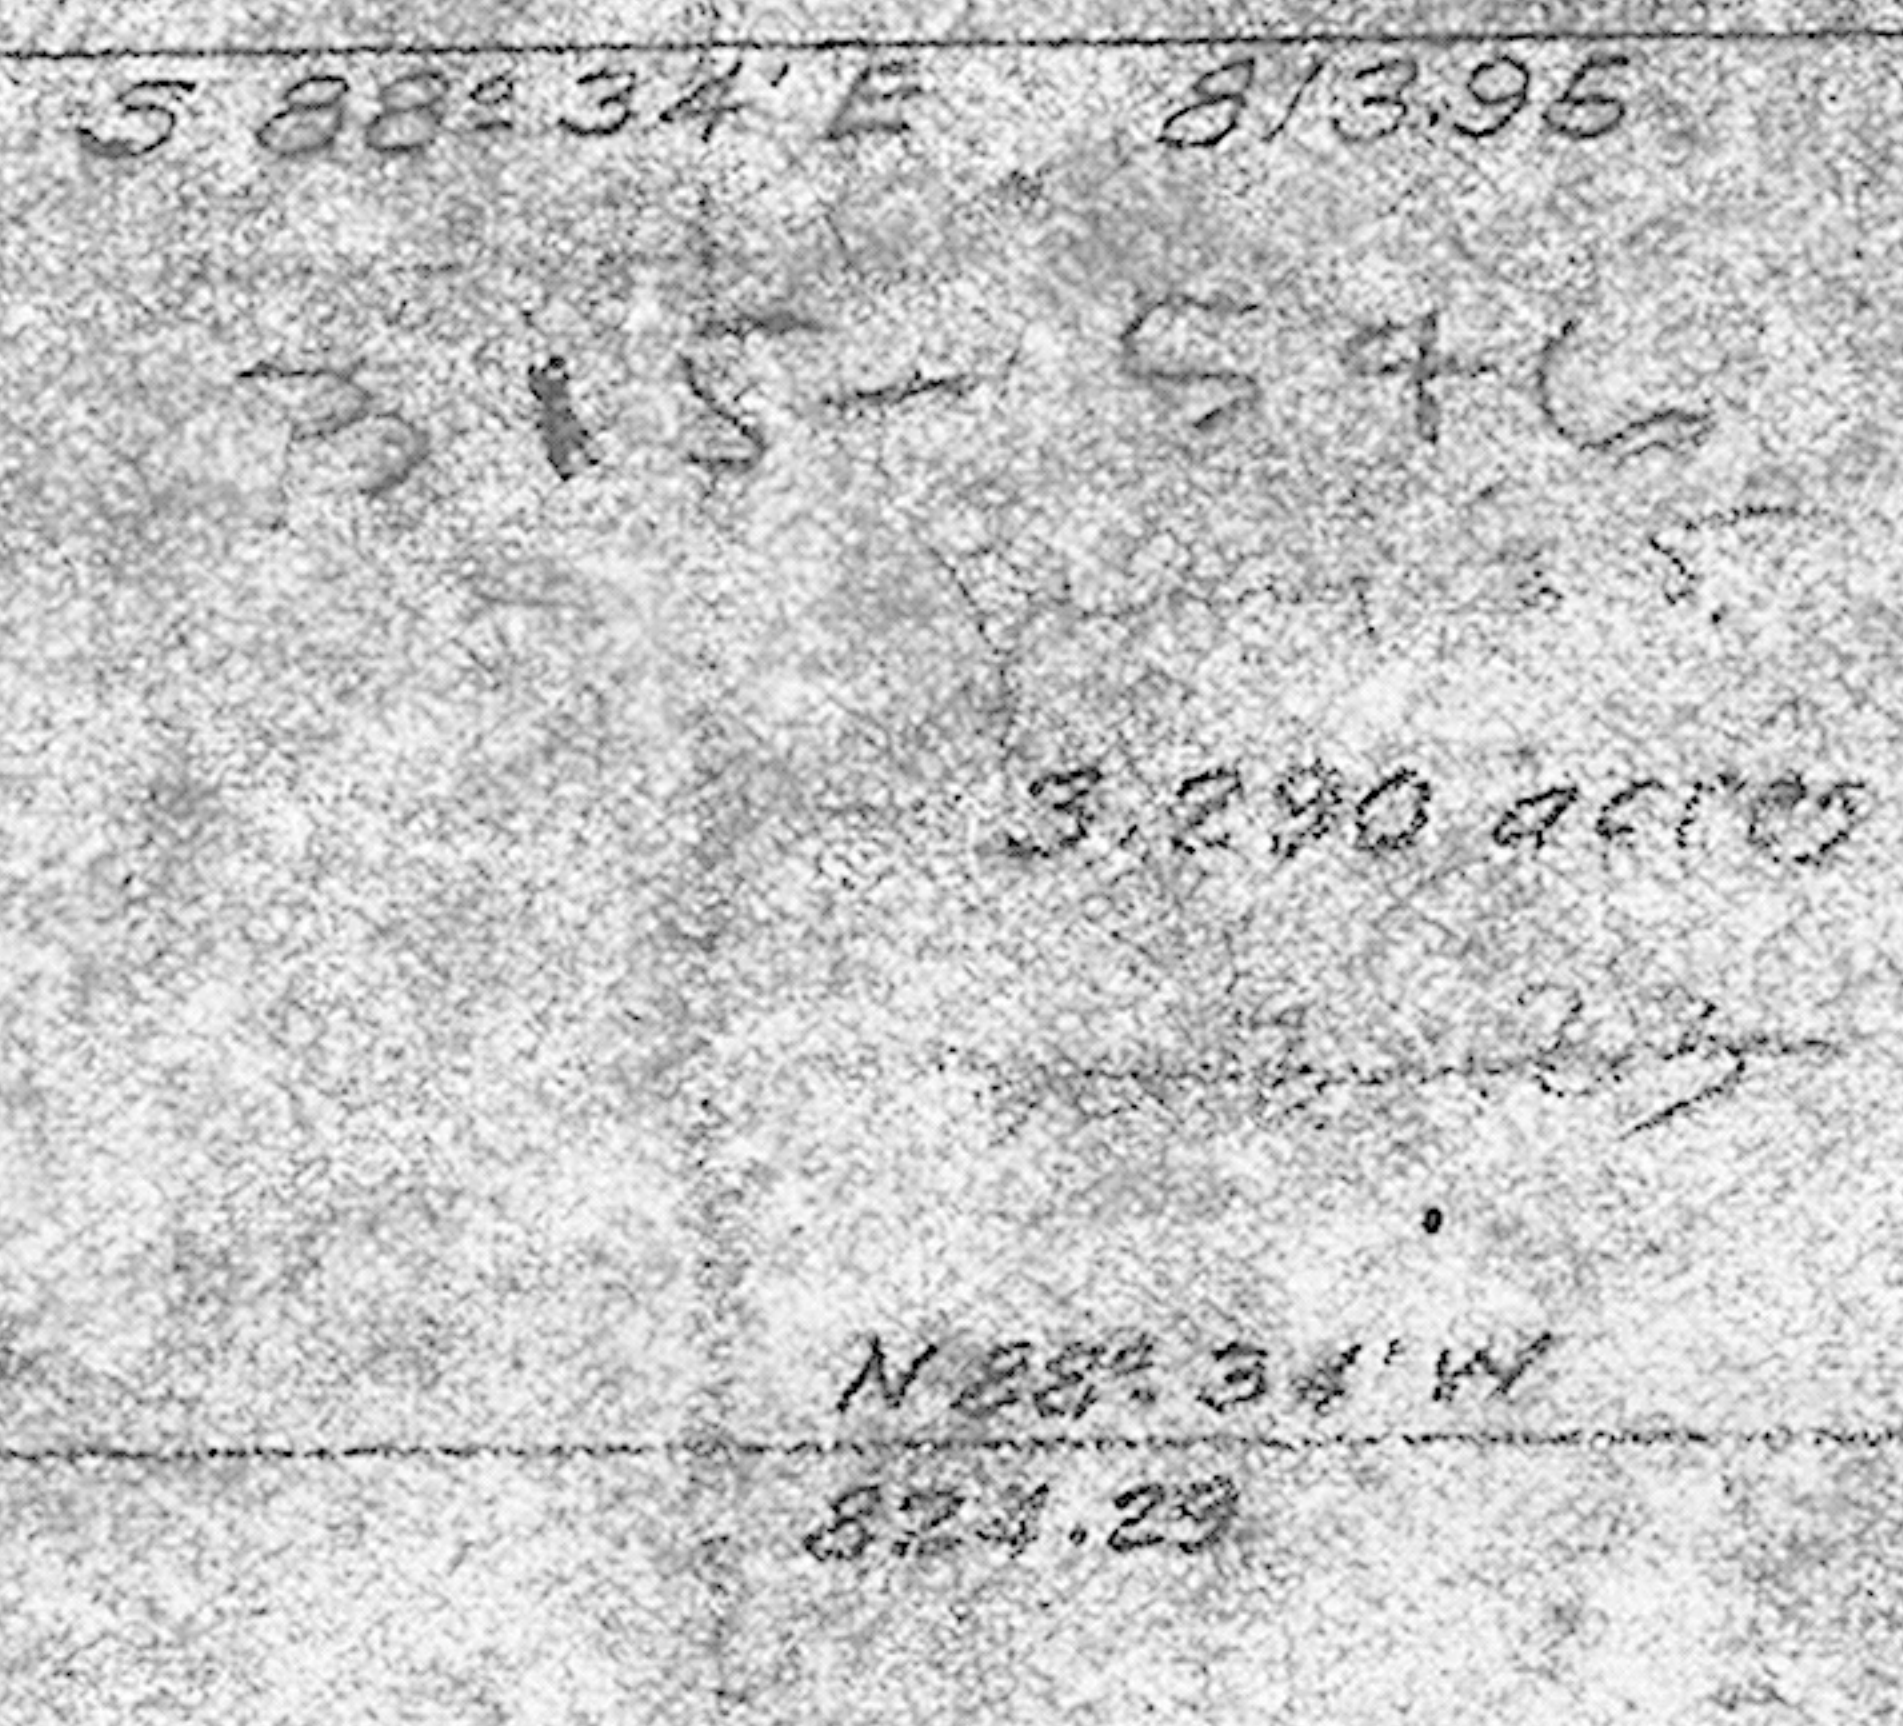 S 88° 34' E 813.95
315-546
5
3.290 acres
N 88° 34' W
824.29